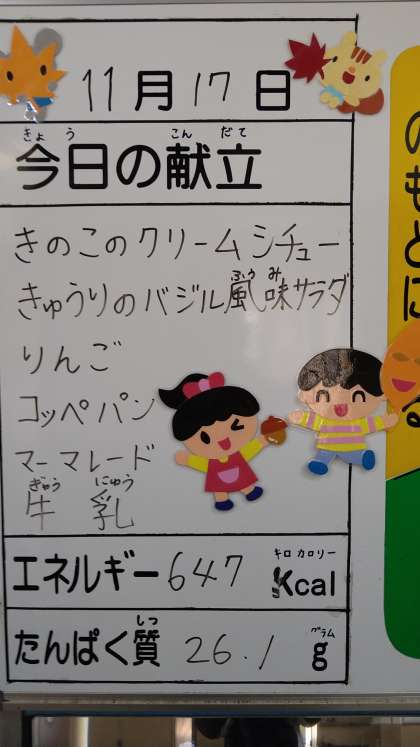 11月17日
きょう こん だて
今日の献立
きのこのクリームシチュー
ふう み
きゅうりのバジル風味サラダ
りんご
コッペパン
マーマレード
ぎゅう にゅう
牛 乳
キロ カロリー
エネルギー 647 Kcal
しつ グラム
たんぱく質 26.1 g
のもとに